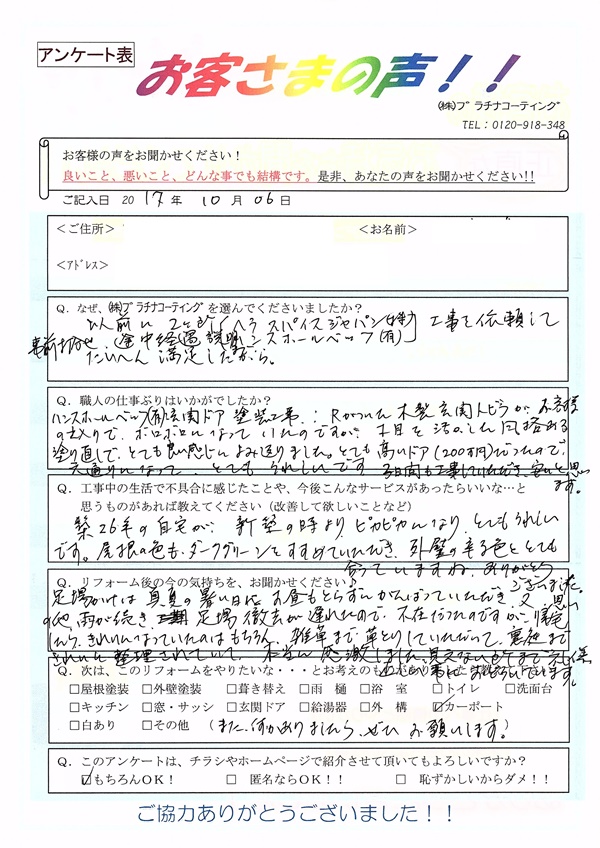 アンケート表
お客さまの声！！
㈱プラチナコーティング
TEL：0120-918-348
お客様の声をお聞かせください！
良いこと、悪いこと、どんな事でも結構です。是非、あなたの声をお聞かせください!!
ご記入日 2017年 10月 06日
＜ご住所＞
＜お名前＞
＜ｱﾄﾞﾚｽ＞
Q．なぜ、㈱プラチナコーティングを選んでくださいましたか？
以前に スパイスジャパン(株) 工事を依頼して
事前 途中経過説明 ハンスホールベック(有)
たいへん満足したから。
Q．職人の仕事ぶりはいかがでしたか？
ハンスホールベック(有)玄関ドア塗装工事：Rがついた木製玄関トビラが、お客様
ボロボロになっていたのですが、木目を活かした風格ある
塗り直しで、とても良い感じに よみ返りました。とても高いドア(200万円)だったので、
元通りになって とてもうれしいです 3日間も工事していただき、安いと思い
ます。
Q．工事中の生活で不具合に感じたことや、今後こんなサービスがあったらいいな…と
思うものがあれば教えてください（改善して欲しいことなど）
築26年の自宅が、新築の時より、ピカピカになり、とてもうれしい
です。屋根の色も、ダークグリーンをすすめていただき、外壁の 色ととても
合っていますね。ありがとう
ございました。
Q．リフォーム後の今の気持ちを、お聞かせください♪
足場かけは 真夏の暑い日に お昼もとらずにがんばっていただき、又、思い
の他、雨が続き、足場徹去が遅れたので、不在だったのですが、帰宅
したら、きれいになっていたのはもちろん、雑草まで草とりしていただいて、裏庭まで
きれいに整理されていて、本当に感激しました。見えない所まで
Q．次は、このリフォームをやりたいな・・・とお考えのもの
□屋根塗装 □外壁塗装 □葺き替え □雨 樋 □浴 室 □トイレ □洗面台
□キッチン □窓・サッシ □玄関ドア □給湯器 □外 構 ☑カーポート
□白あり □その他 (また、何かありましたら、ぜひ お願いします。)
Q．このアンケートは、チラシやホームページで紹介させて頂いてもよろしいですか？
☑もちろんOK！ □ 匿名ならOK！！ □ 恥ずかしいからダメ！！
ご協力ありがとうございました！！